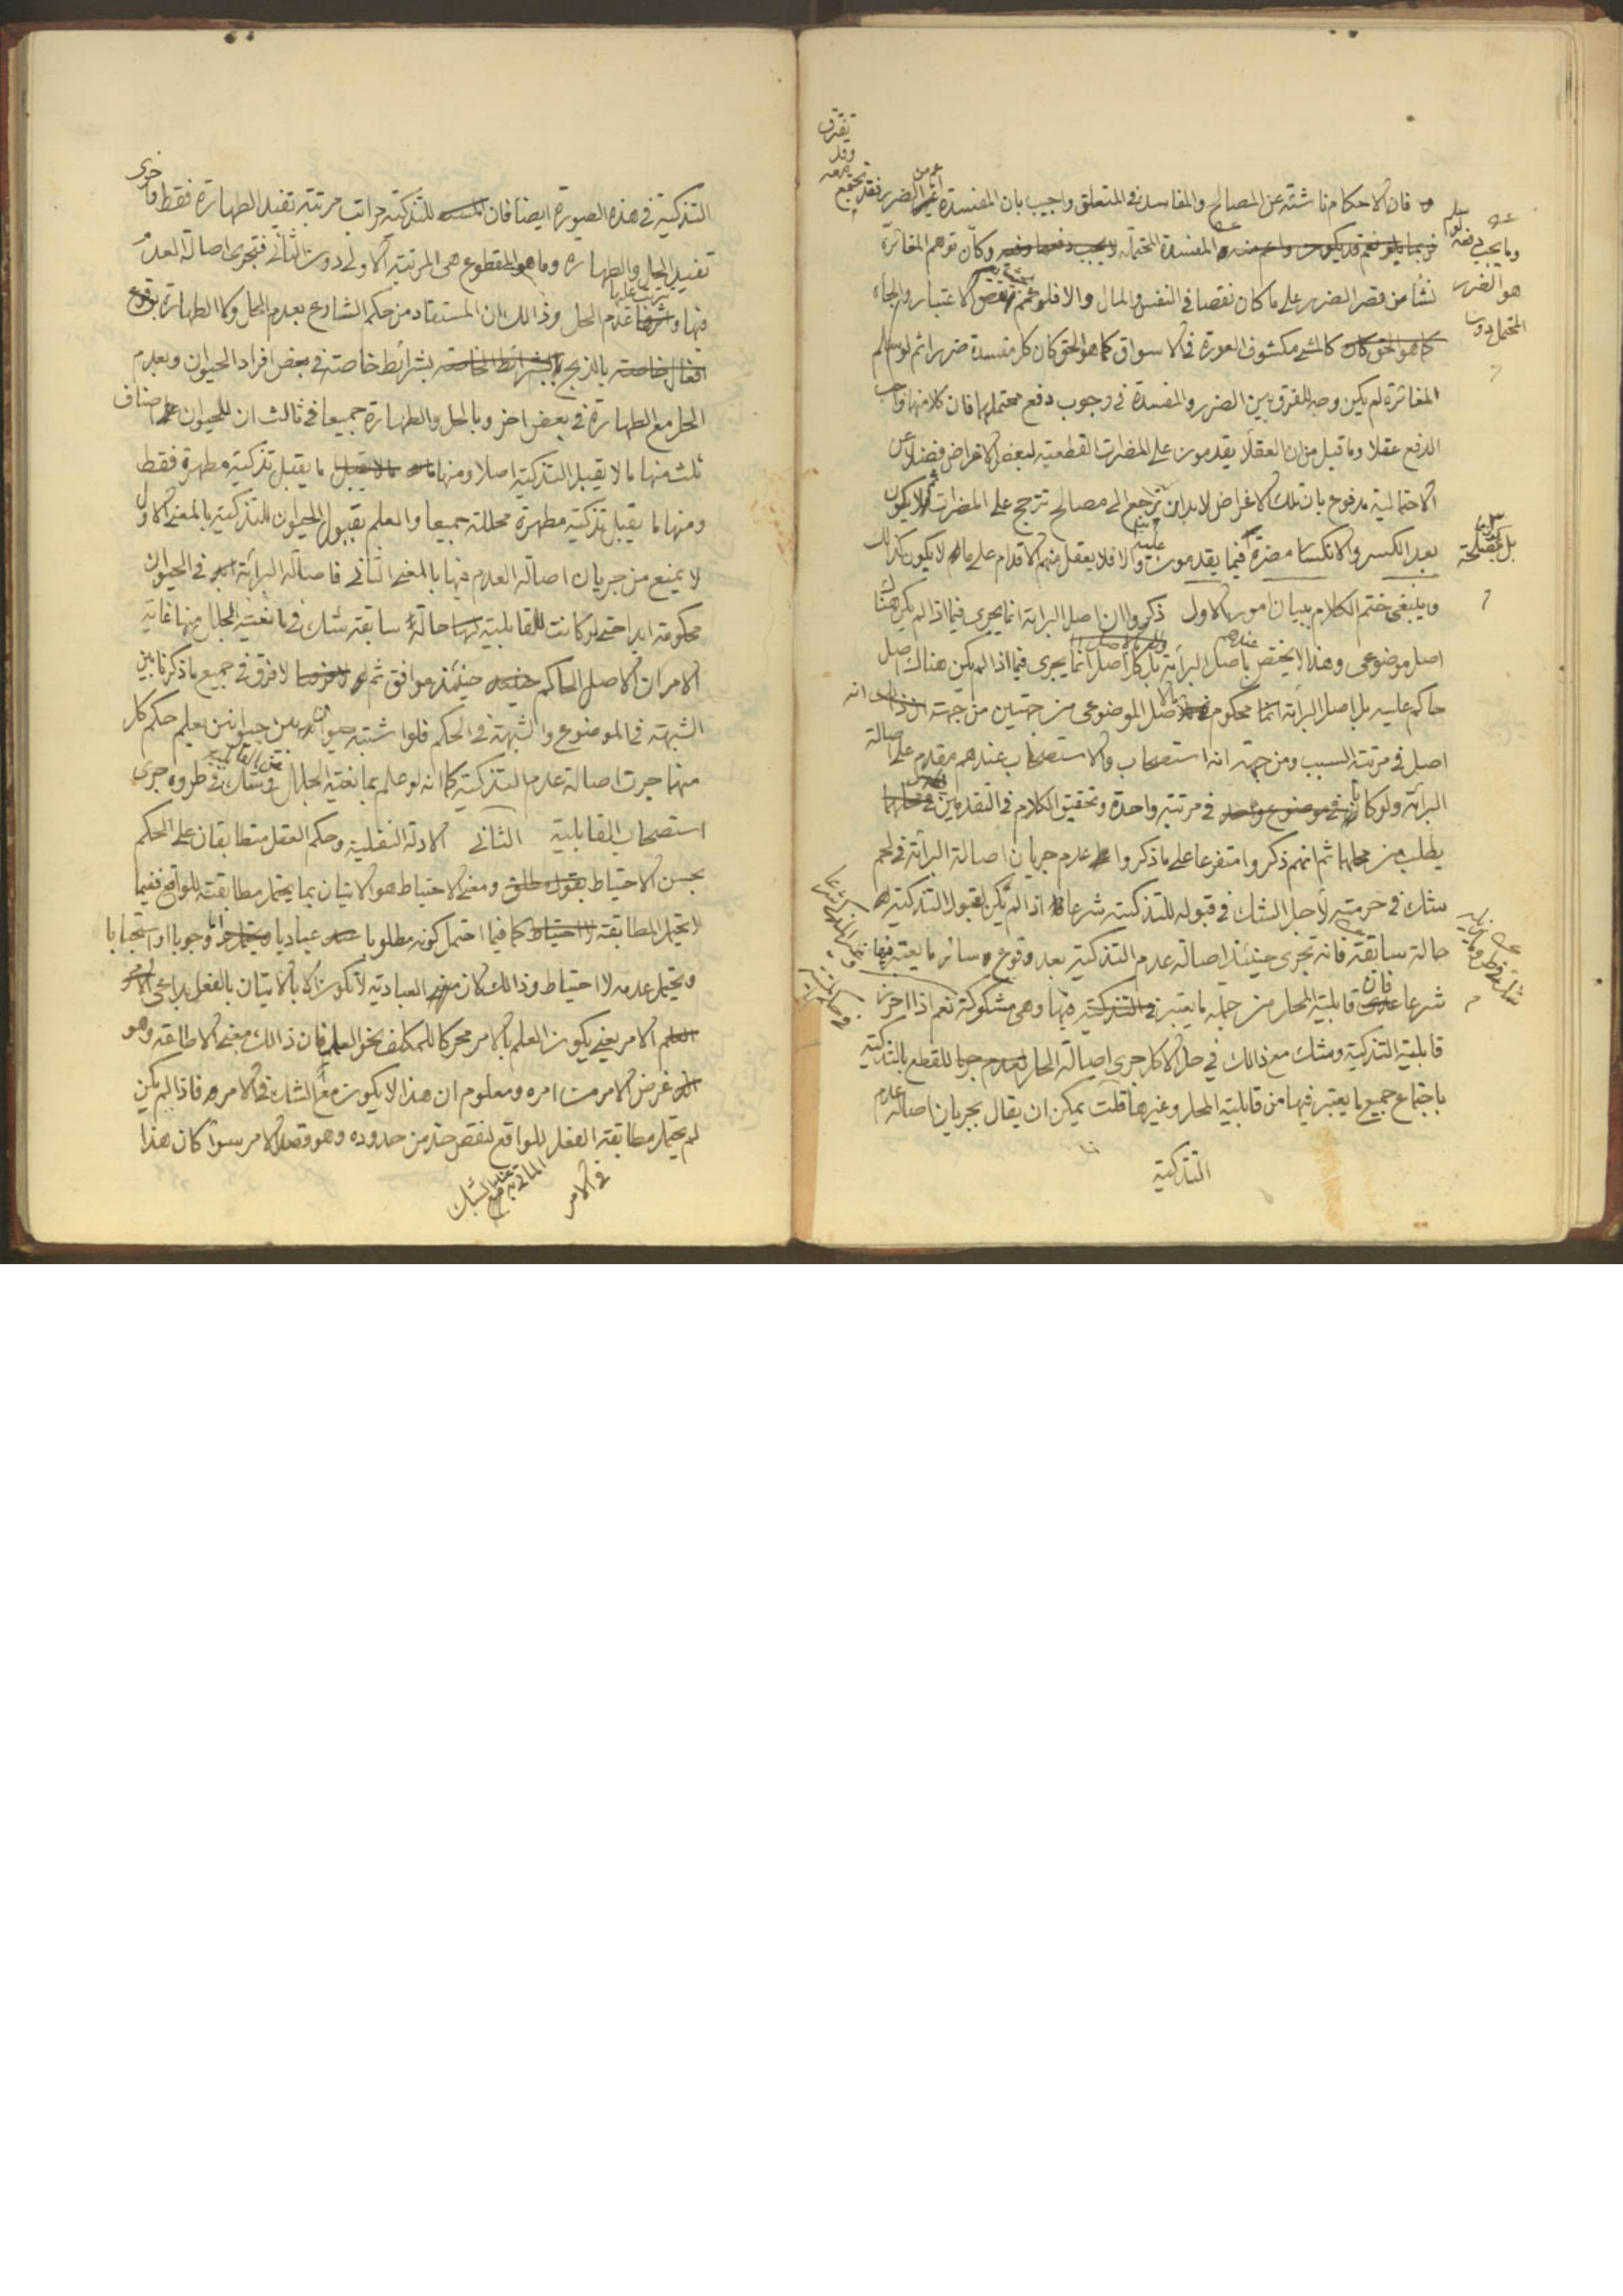 فان الاحكام ناشئة عن المصالح والمفاسد في المتعلق واجيب بان المفسدة اعم من الضرر فقد تجتمع معه وقد تفترق
وما يجب دفعه لو سلم هو الضرر المحتمل دون المفسدة المحتملة وكأن توهم المغائرة
نشأ من قصر الضرر على ما كان نقصا في النفس والمال والا فلو عمم نقص الاعتبار والجاه
كالمشي مكشوف العورة في الاسواق كما هو الحق كان كل مفسدة ضررا ثم لو سلم
المغائرة لم يكن وجه للفرق بين الضرر والمفسدة في وجوب دفع محتملها فان كلا منهما واجب
الدفع عقلا وما قيل من ان العقلاء يقدمون على المضرات القطعية لبعض الاغراض فضلا عن
الاحتمالية مدفوع بان تلك الاغراض لا بد ان ترجع الى مصالح تترجح على المضرات ثم لا يكون
بعد الكسر والانكسار مضرة بل مصلحة فيما يقدمون عليه والا فلا يعقل منهم الاقدام على ما لا يكون كذلك
وينبغي ختم الكلام ببيان امور الاول ذكروا ان اصل البرائة انما يجري فيما اذا لم يكن هناك
اصل موضوعي وهذا لا يختص عندهم باصل البرائة بل كل اصل انما يجري فيما اذا لم يكن هناك اصل
حاكم عليه بل اصل البرائة محكوم بالاصل الموضوعي من جهتين من جهة انه
اصل في مرتبة السبب ومن جهة انه استصحاب والاستصحاب عندهم مقدم على اصالة
البرائة ولو كانا في مرتبة واحدة وتحقيق الكلام في التقدمين
يطلب من محلهما ثم انهم ذكروا متفرعا على ما ذكروا عدم جريان اصالة البرائة في لحم
شك في حرمته لاجل الشك في قبوله للتذكية شرعا اذا لم يكن لقبول التذكية
حالة سابقة فانه تجري حينئذ اصالة عدم التذكية بعد وقوع سائر ما يعتبر فيها
شرعا فان قابلية المحل من جملة ما يعتبر فيها وهي مشكوكة نعم اذا احرز
قابلية التذكية وشك مع ذلك في حل الاكل جرى اصالة الحل للقطع بالتذكية
باجتماع جميع ما يعتبر فيها من قابلية المحل وغيرها قلت يمكن ان يقال بجريان اصالة عدم
التذكية
التذكية في هذه الصورة ايضا فان للتذكية مراتب مرتبة تفيد الطهارة فقط واخرى
تفيد الحل والطهارة وما هو المقطوع هي المرتبة الاولى دون الثاني فتجري اصالة العدم
فيها ويترتب عليها عدم الحل وذلك ان المستفاد من حكم الشارع بعدم الحل ولا الطهارة بوقوع
بالذبح بشرائط خاصة في بعض افراد الحيوان وبعدم
الحل مع الطهارة في بعض اخر وبالحل والطهارة جميعا في ثالث ان للحيوان اصناف
ثلث منها ما لا يقبل التذكية اصلا ومنها ما يقبل تذكية مطهرة فقط
ومنها ما يقبل تذكية مطهرة محللة جميعا والعلم بقبول الحيوان للتذكية بالمعنى الاول
لا يمنع من جريان اصالة العدم فيها بالمعنى الثاني فاصالة البرائة في الحيوان
محكومة ابدا حتى لو كانت للقابلية حالة سابقة شك في مانعية الجلل منها غاية
الامر ان الاصل الحاكم حينئذ موافق ثم لا فرق في جميع ما ذكرنا بين
الشبهة في الموضوع والشبهة في الحكم فلو اشتبه حيوان بين حيوانين يعلم حكم كل
منهما جرت اصالة عدم التذكية كما انه لو علم بمانعية الجلل عن القابلية وشك في طروه جرى
استصحاب القابلية الثاني الادلة النقلية وحكم العقل متطابقان على الحكم
بحسن الاحتياط ومعنى الاحتياط هو الاتيان بما يحتمل مطابقته للواقع ففيما
لا يحتمل المطابقة لا احتياط كما فيما احتمل كونه مطلوبا عباديا وجوبا او استحبابا
ويحتمل عدمه لا احتياط وذلك كان العبادية لا تكون الا بالاتيان بالفعل بداعي
الامر يعني يكون العلم بالامر محركا للمكلف نحو العمل فان ذلك معنى الاطاعة وهو
غرض الامر من امره ومعلوم ان هذا لا يكون مع الشك في الامر فاذا لم يكن
لم يحتمل مطابقة الفعل للواقع لنقص حد من حدوده وهو قصد الامر سواء كان هذا
في الامر